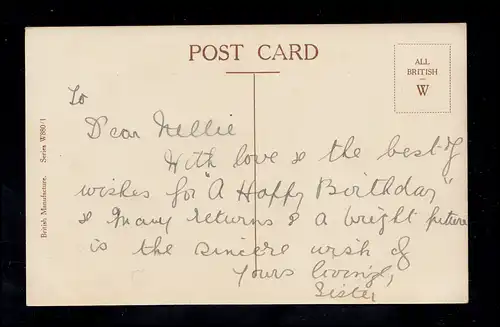 POST CARD
ALL
BRITISH
W
British Manufacture. Series W880/1
To
Dear Nellie
With love & the best of
wishes for "A Happy Birthday"
& Many returns & a bright future
is the sincere wish of
Yours lovingly,
Sister